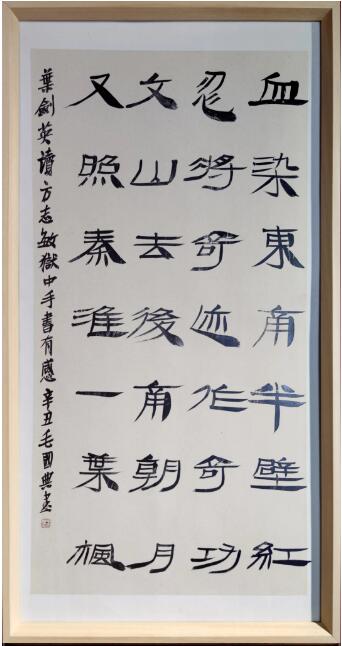 血染東南半壁紅
忍將奇迹作奇功
文山去後南朝月
又照秦淮一葉楓
葉劍英讀方志敏獄中手書有感 辛丑毛國典書